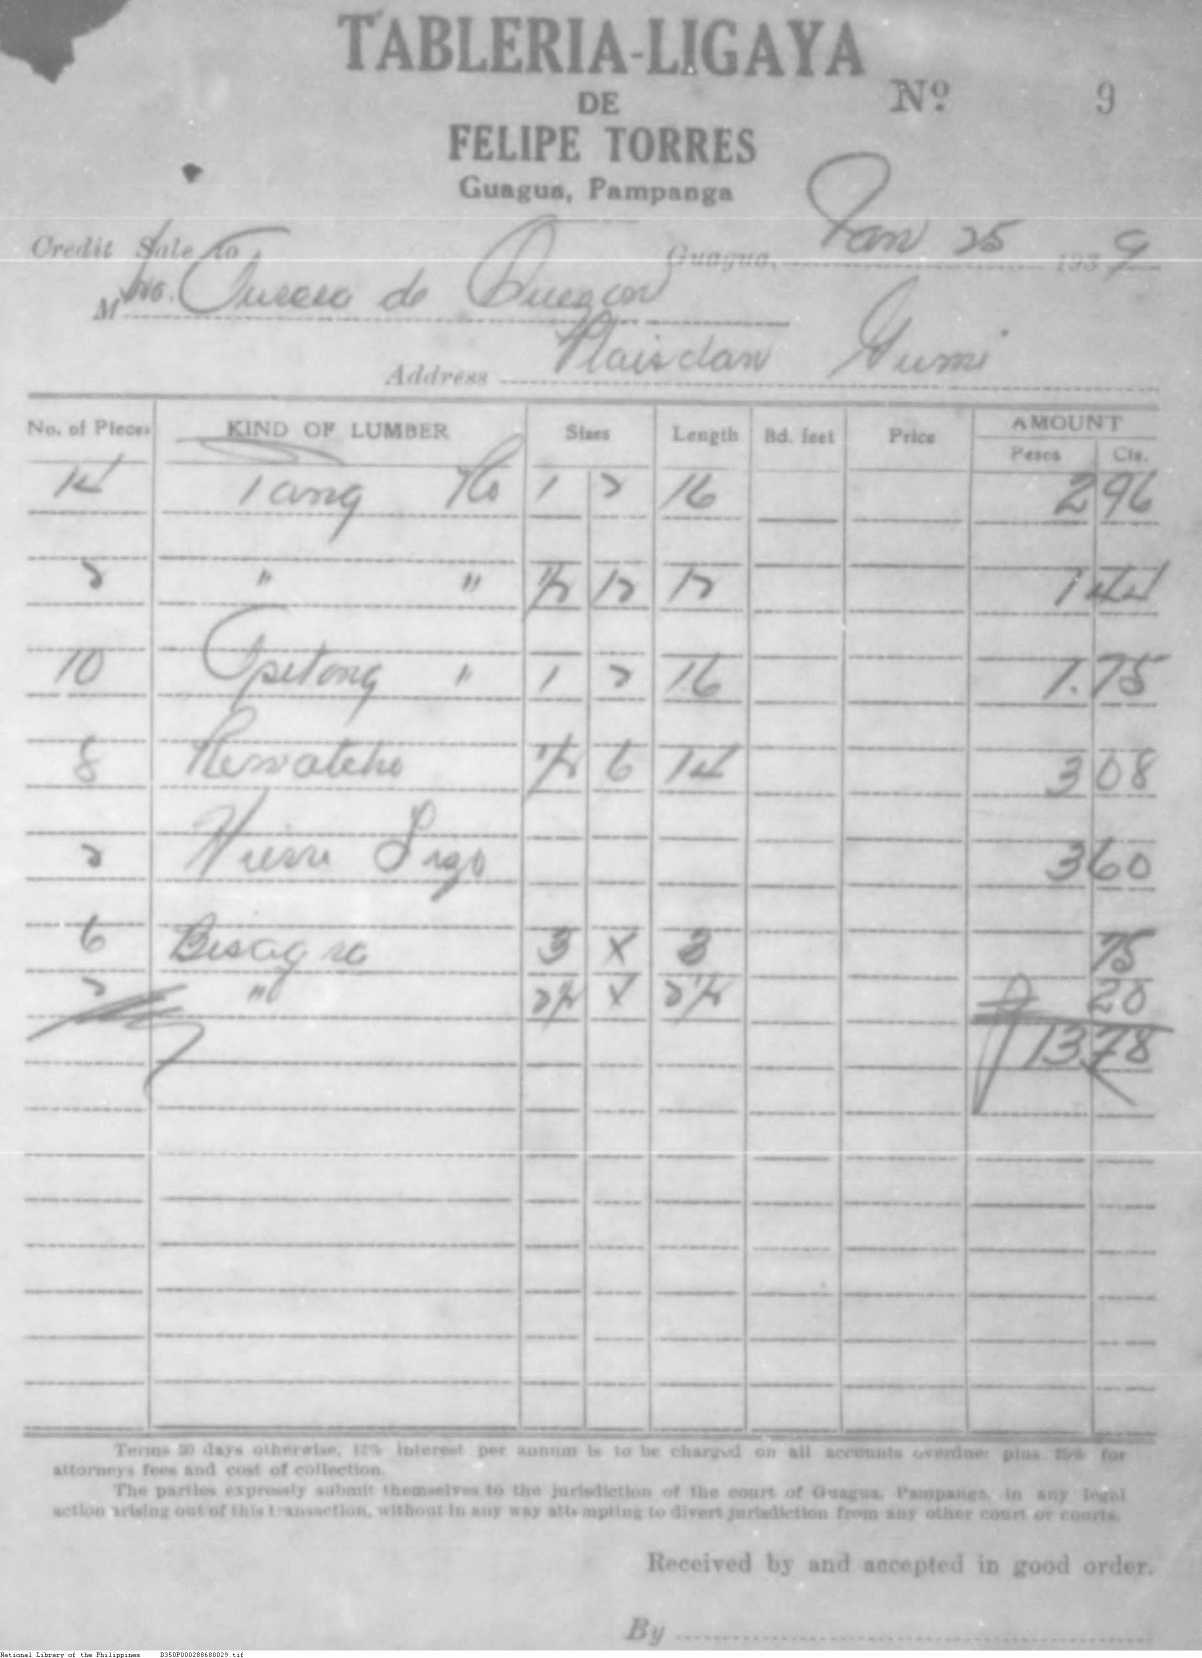 TABLERIA-LIGAYA
DE
Nº 9
FELIPE TORRES
Guagua, Pampanga
Credit Sale to Guagua, Jan 25 1939
Mrs. Aurora de Quezon
Address Gumi
No. of Pieces KIND OF LUMBER Sizes Length Bd. feet Price AMOUNT
Pesos Cts.
14 Tang 1 2 16 2 96
2 " " 1/2 12 12 1 44
10 Apitong " 1 2 16 1.75
8 1/2 6 14 3 08
2 3 60
6 Bisagra 3 x 3 75
2 " 2 1/2 x 2 1/2 20
13.78
Terms 30 days otherwise, 12% interest per annum is to be charged on all accounts overdue; plus 25% for
attorneys fees and cost of collection.
The parties expressly submit themselves to the jurisdiction of the court of Guagua, Pampanga, in any legal
action arising out of this transaction, without in any way attempting to divert jurisdiction from any other court or courts.
Received by and accepted in good order.
By
National Library of the Philippines B350P000288680029.tif